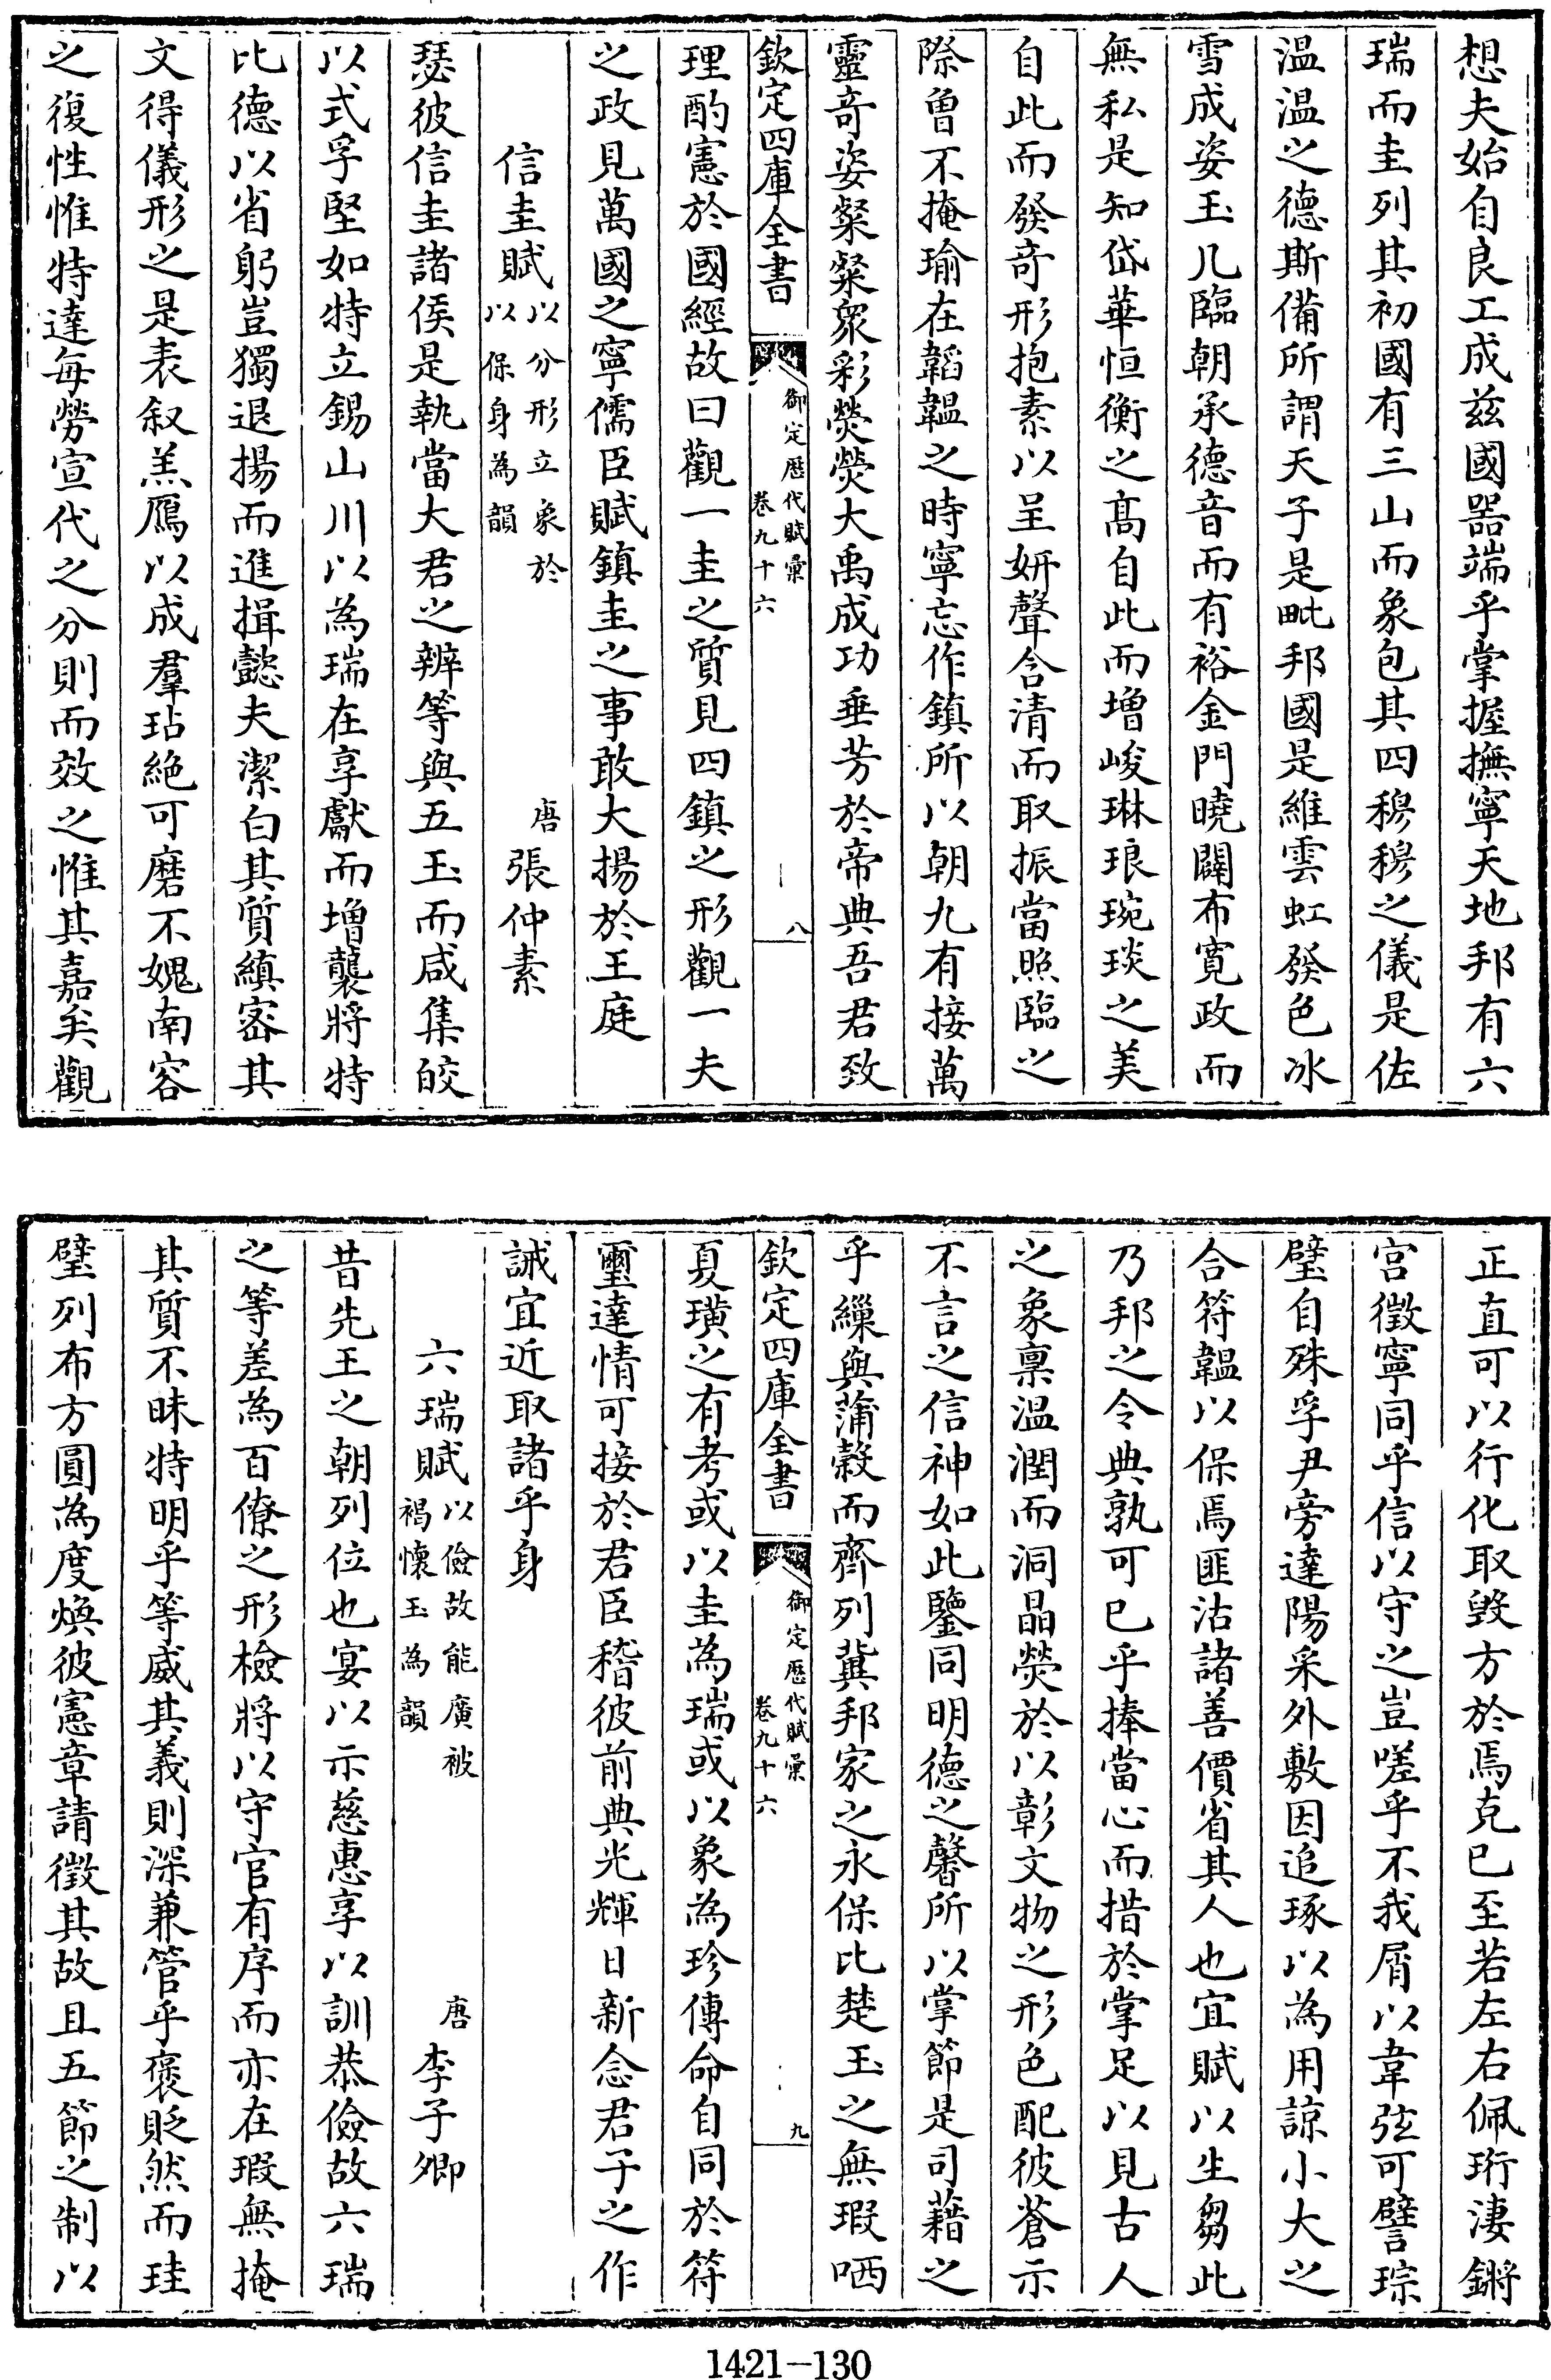 想夫始自良工成兹國器端乎掌握撫寧天地邦有六
瑞而圭列其初國有三山而象包其四穆穆之儀是佐
温温之德斯備所謂天子是毗邦國是維雲虹發色冰
雪成姿玉几臨朝承德音而有裕金門曉闢布寛政而
無私是知岱華恒衡之髙自此而增峻琳琅琬琰之美
自此而發竒形抱素以呈妍聲含清而取振當照臨之
際曽不掩瑜在韜韞之時寧忘作鎮所以朝九有接萬
靈竒姿粲粲衆彩熒熒大禹成功垂芳於帝典吾君致
欽定四庫全書
御定歷代賦彙
卷九十六
八
理酌憲於國經故曰觀一圭之質見四鎮之形觀一夫
之政見萬國之寧儒臣賦鎮圭之事敢大揚於王庭
信圭賦
以分形立象於
以保身為韻
唐
張仲素
瑟彼信圭諸侯是執當大君之辨等與五玉而咸集皎
以式孚堅如特立錫山川以為瑞在享獻而增襲將特
比德以省躬豈獨退揚而進揖懿夫潔白其質縝宻其
文得儀形之是表叙羔鴈以成羣玷絶可磨不媿南容
之復性惟特達每勞宣代之分則而效之惟其嘉矣觀
正直可以行化取毁方於焉克已至若左右佩珩淒鏘
宫徵寧同乎信以守之豈嗟乎不我屑以韋弦可譬琮
璧自殊孚尹旁達陽采外敷因追琢以為用諒小大之
合符韞以保焉匪沽諸善價省其人也宜賦以生芻此
乃邦之令典孰可已乎捧當心而措於掌足以見古人
之象禀温潤而洞晶熒於以彰文物之形色配彼蒼示
不言之信神如此鑒同明德之馨所以掌節是司藉之
乎繅與蒲穀而齊列冀邦家之永保比楚玉之無瑕哂
欽定四庫全書
御定歷代賦彙
卷九十六
九
夏璜之有考或以圭為瑞或以象為珍傳命自同於符
璽達情可接於君臣稽彼前典光輝日新念君子之作
誡宜近取諸乎身
六瑞賦
以儉故能廣被
褐懐玉為韻
唐
李子卿
昔先王之朝列位也宴以示慈惠享以訓恭儉故六瑞
之等差為百僚之形檢將以守官有序而亦在瑕無掩
其質不昧特明乎等威其義則深兼管乎褒貶然而珪
璧列布方圓為度煥彼憲章請徵其故且五節之制以
1421—130